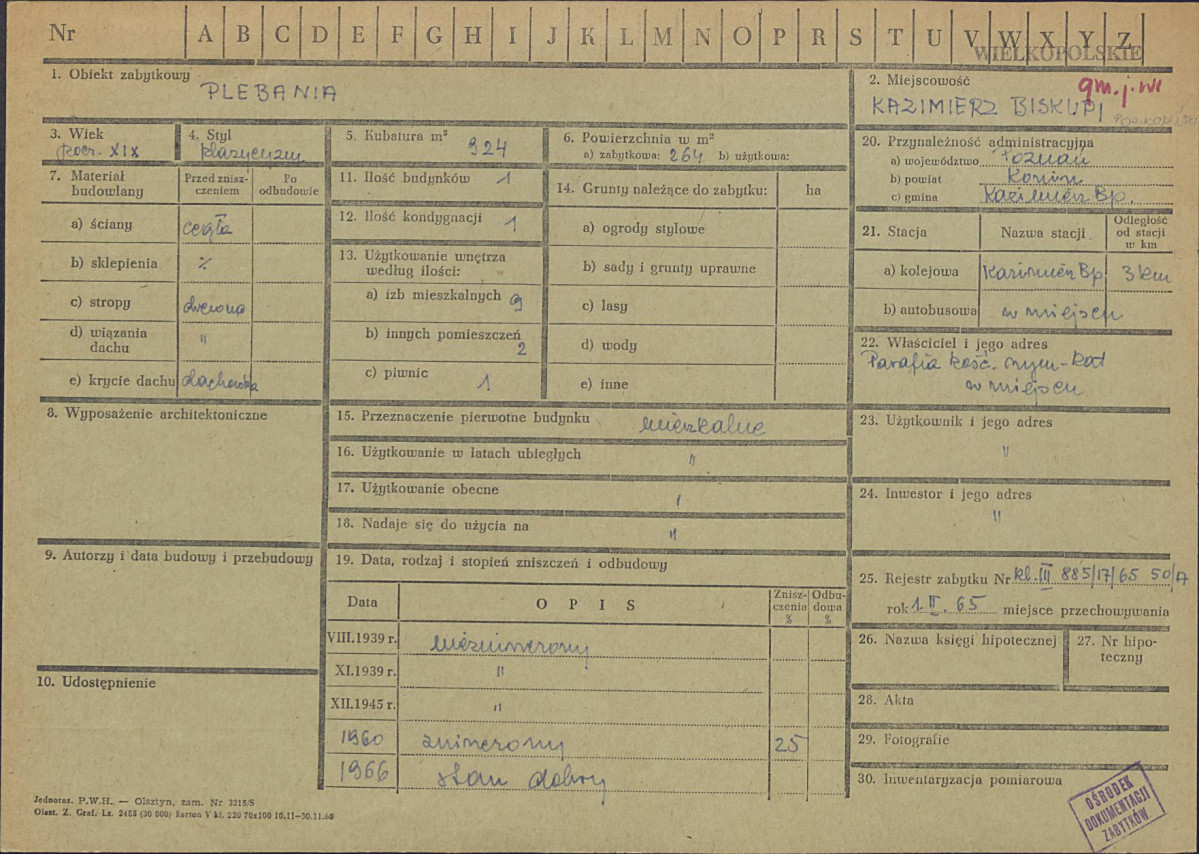 Nr A B C D E F G H I J K L M N O P R S T U V W X Y Z
WIELKOPOLSKIE
1. Obiekt zabytkowy
PLEBANIA
2. Miejscowość
gm. j. wi
KAZIMIERZ BISKUPI
3. Wiek
pocz. XIX
4. Styl
klazycyzm
5. Kubatura m³ 924
6. Powierzchnia w m²
a) zabytkowa: 264 b) użytkowa:
7. Materiał budowlany
Przed zniszczeniem
Po odbudowie
a) ściany cegła
b) sklepienia %
c) stropy drewno
d) wiązania dachu "
e) krycie dachu dachówka
8. Wyposażenie architektoniczne
9. Autorzy i data budowy i przebudowy
10. Udostępnienie
11. Ilość budynków 1
12. Ilość kondygnacji 1
13. Użytkowanie wnętrza według ilości:
a) izb mieszkalnych 9
b) innych pomieszczeń 2
c) piwnic 1.
14. Grunty należące do zabytku: ha
a) ogrody stylowe
b) sady i grunty uprawne
c) lasy
d) wody
e) inne
15. Przeznaczenie pierwotne budynku mieszkalne
16. Użytkowanie w latach ubiegłych "
17. Użytkowanie obecne "
18. Nadaje się do użycia na "
19. Data, rodzaj i stopień zniszczeń i odbudowy
Data OPIS Zniszczenia % Odbudowa %
VIII.1939 r. niezniszczony
XI.1939 r. "
XII.1945 r. "
1960 zniszczony 25
1966 stan dobry
20. Przynależność administracyjna
a) województwo Poznań
b) powiat Konin
c) gmina Kazimierz Bp.
21. Stacja
Nazwa stacji
Odległość od stacji w km
a) kolejowa Kazimierz Bp 3 km
b) autobusowa w miejscu
22. Właściciel i jego adres
Parafia kość. rzym-kat
w miejscu
23. Użytkownik i jego adres
"
24. Inwestor i jego adres
"
25. Rejestr zabytku Nr kl. III 885/17/65 50/A
rok 1. II. 65 miejsce przechowywania
26. Nazwa księgi hipotecznej
27. Nr hipoteczny
28. Akta
29. Fotografie
30. Inwentaryzacja pomiarowa
OŚRODEK
DOKUMENTACJI
ZABYTKÓW
Jednoraz. P.W.H. — Olsztyn, zam. Nr 3215/S
Olszt. Z. Graf. Lz. 2485 (30 000) Karton V kl. 220 70x100 10.11—30.11.60